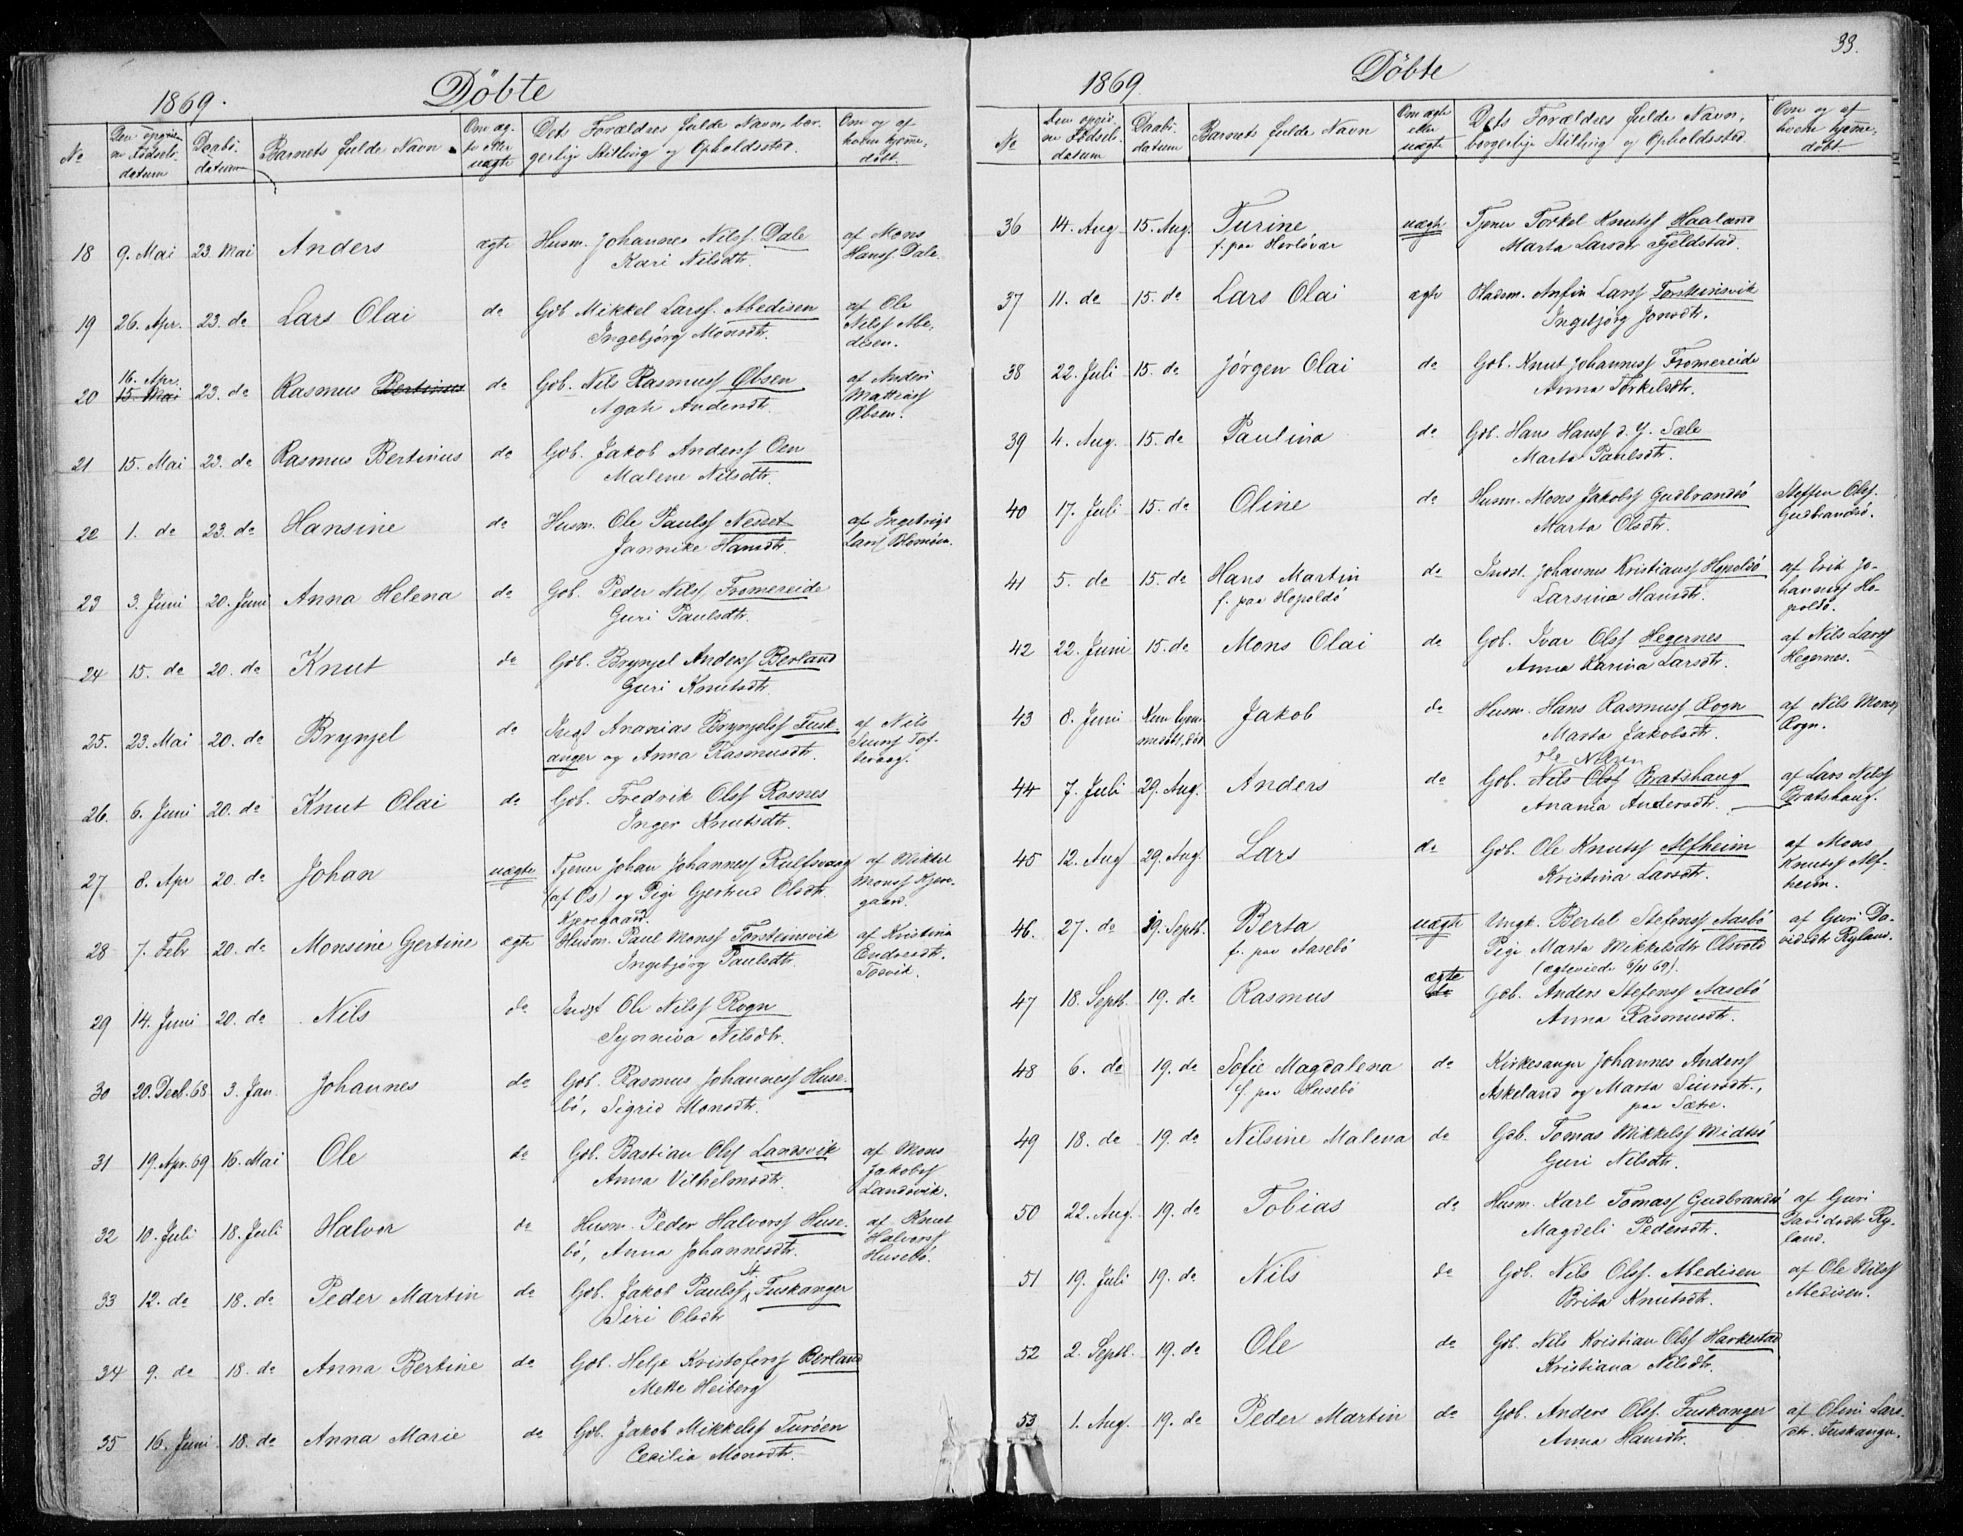 1869.
Döbte
No
Den opgivne Fødselsdatum
Daabsdatum
Barnets fulde Navn.
Om ægte eller uægte
Dets Forældres fulde Navn, borgerlige Stilling og Opholdssted.
Om og af hvem hjemmedøbt.
18 9. Mai 23. Mai Anders ægte Husm. Johannes Nilsf. Dale af Mons
Kari Nilsdtr. Hansf Dale.
19 26. Apr. 23. do Lars Olai do Gdb Mikkel Larsf. Medisen af Ole
Ingebjørg Monsdtr. Nilsf Medisen.
16. Apr.
20 15. Mai 23. do Rasmus Bertinus do Gdb. Nils Rasmusf Øbsen af Anders
Agate Andersdtr. Mattiasf Øbsen.
21 15. Mai 23. do Rasmus Bertinus do Gdb. Jakob Andersf Oen
Malene Nilsdtr.
22 1. do 23. do Hansine do Husm. Ole Paulsf Nesset
Jannike Hansdtr. Larsf Blomøen.
23 3. Juni 20. Juni Anna Helena do Gdb. Peder Nilsf Fromereide
Guri Paulsdtr.
24 15. do 20. do Knut do Gdb. Brynjel Andersf Berland
Guri Knutsdtr.
25. 23. Mai 20. do Brynjel do Indst Ananias Brynjelsf Fusk- af Nils
anger og Anna Rasmusdtr.
26. 6. Juni 20. do Knut Olai do Gdb. Fredrik Olsf Rosnes
Inger Knutsdtr.
27 8. Apr 20. do Johan uægte Tjener Johan Johannesf af Mikkel
(af Os) og Pige Gjertrud Olsdtr. Monsf Kjæregaard.
Kjæregaard.
28 7. Febr 20. do Monsine Gertine ægte Husm. Paul Monsf Torsteinsvik af Kristina
Ingebjørg Paulsdtr. Endresdtr.
Tosvik.
29 14. Juni 20. do Nils do Indst Ole Nilsf Rogn
Synniva Nilsdtr.
30 20. Decb. 68 3. Jan. Johannes do Gdb. Rasmus Johannesf Huse-
bö, Sigrid Monsdtr.
31 19. Apr. 69 16. Mai Ole do Gdb. Bastian Olsf Landsvik af Mons
Anna Vilhelmsdtr. Jakobsf
Landsvik.
32 10. Juli 18. Juli Halvor do Husm. Peder Halvorsf Huse- af Knut
bö, Anna Johannesdtr. Halvorsf
Husebö.
33 12. do 18. do Peder Martin do Gdb. Jakob Paulsf St. Fuskanger
Siri Olsdtr
34 9. do 18. do Anna Bertine do Gdb. Helje Kristofersf Berland
Mette Heiberg
35 16. Juni 18. do Anna Marie do Gdb. Jakob Mikkelsf Turöen
Cecilia Monsdtr.
33.
1869
Döbte
No
Den opgivne Fødselsdatum
Daabsdatum
Barnets fulde Navn
Om ægte eller uægte
Dets Forældres fulde Navn, borgerlige Stilling og Opholdssted.
Om og af hvem hjemmedøbt.
36 14. Aug 15. Aug. Turine uægte Tjener Torkel Knutsf Haaland
f. paa Herløvær Marta Larsdtr Fjeldstad.
37 11. do 15. do Lars Olai ægte Pladsm. Anfin Larsf Torsteinsvik
Ingebjørg Jonsdtr.
38 22. Juli 15. do Jørgen Olai do Gdb. Knut Johannesf Fromereide
Anna Torkelsdtr.
39 4. Aug. 15. do Paulina do Gdb. Hans Hansf d. Y. Sæle
Marta Paulsdtr.
40 17. Juli 15. do Oline do Husm. Mons Jakobsf Gudbrandsö Steffen Olsf.
Marta Olsdtr. Gudbrandsö.
41 5. do 15. do Hans Martin do Indst. Johannes Kristiansf Hopolsö af Erik Jo-
f. paa Hopoldö Larsina Hansdtr. hannesf Ho-
poldö.
42 22. Juni 15. do Mons Olai do Gdb. Ivar Olsf Hegernes af Nils Larsf
Anna Karina Larsdtr. Hegernes.
43 8. Juni Kun hjemmedöbt, död Jakob do Husm. Hans Rasmusf Rogn af Nils Monsf
Marta Jakobsdtr. Rogn.
Ole Nilsen
44 7. Juli 29. Aug. Anders do Gdb. Nils Olsf Bratshaug af Lars Nilsf
Anania Andersdtr. Bratshaug.
45 12. Aug 29. Aug. Lars do Gdb. Ole Knutsf Alfheim af Mons
Kristina Larsdtr. Knutsf Alf-
heim.
46. 27. do 19. Septb. Berta uægte Ungk. Bertel Stefensf Aasebö af Guri Da-
f. paa Aasebö Pige Marta Mikkelsdtr Olsvold vidsdtr Ryland.
(ægteviede 6/11 69).
47 18. Septb. 19. do Rasmus ægte do Gdb. Anders Stefensf Aasebö
Anna Rasmusdtr.
48 6. do 19. do Sofie Magdalena do Kirkesanger Johannes Andersf
f. paa Husebö Askeland og Marta Seivasdtr.,
paa Sætre.
49 18. do 19. do Nilsine Malena do Gdb. Tomas Mikkelsf Midtsö
Guri Nilsdtr.
50 22. Aug. 19. do Tobias do Husm. Karl Tomasf Gudbrandsö af Guri
Magdeli Pedersdtr. Davidsdtr Ry-
land.
51 19. Juli 19. do Nils do Gdb. Nils Olsf. Medisen af Ole Nilsf
Brita Knutsdtr. Medisen.
52 2. Septb. 19. do Ole do Gdb. Nils Kristian Olsf Harkestad
Kristiana Nilsdtr.
53 1. Aug. 19. do Peder Martin do Gdb. Anders Olsf. Fuskanger af Olini Lars-
Anna Hansdtr. dtr. Fuskanger.